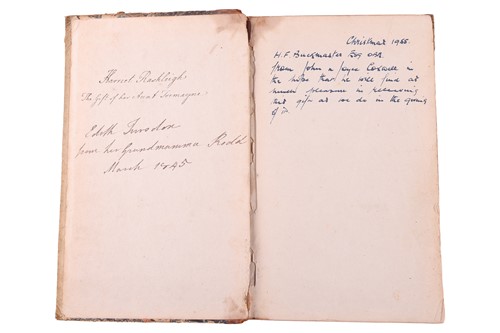 Harriet Rashleigh
The gift of her Aunt Tremayne
Edith
from her Grandmamma Rodd
March 1845
Christmas 1955.
H. F. Buckmaster Esq OBE.
from John & Joyce in
the hope that he will find as
much pleasure in receiving
this gift as we do in the giving
of it